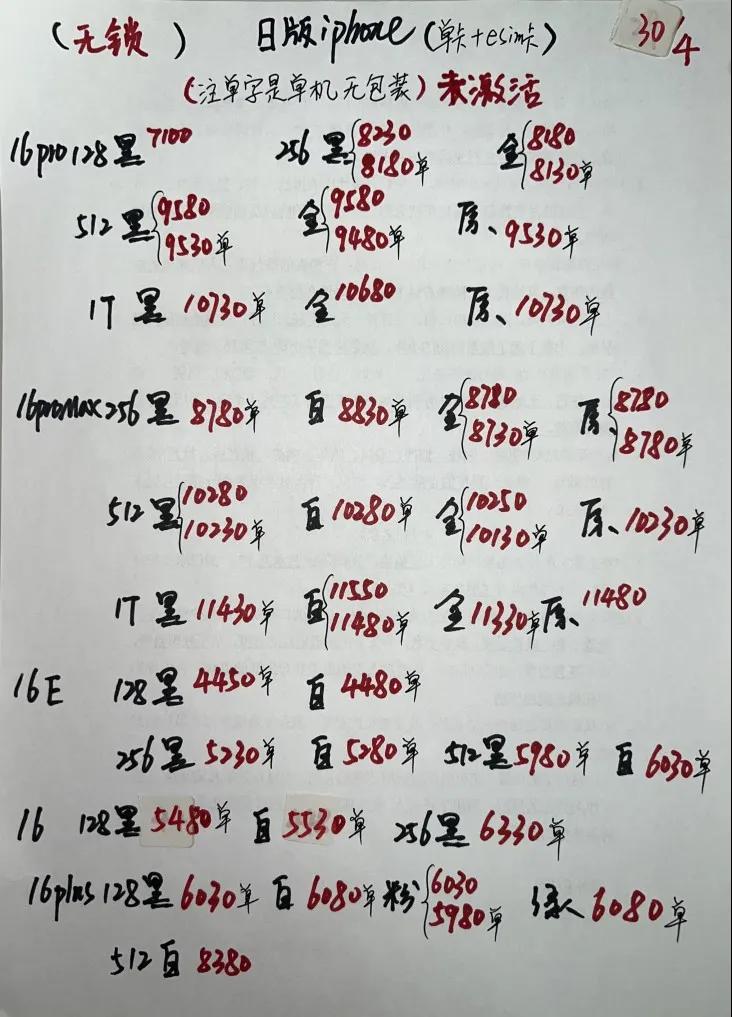 (无锁) 日版iphone (单卡+esim卡) 30/4
(注单字是单机无包装) 未激活
16pro128黑 7100 256 黑{8230 8180单 金{8180 8130单
512 黑{9580 9530单 金{9580 9480单 原、9530单
1T 黑 10730单 金 10680 原、10730单
16proMax256黑 8780单 白 8830单 金{8780 8730单 原、{8780 8780单
512黑{10280 10230单 白 10280单 金{10250 10130单 原、10230单
1T 黑 11430单 白{11550 11480单 金 11330单 原、11480
16E 128黑 4450单 白 4480单
256黑 5230单 白 5280单 512黑 5980单 白 6030单
16 128黑 5480单 白 5530单 256黑 6330单
16plus 128黑 6030单 白 6080单 粉{6030 5980单 绿 6080单
512白 8380